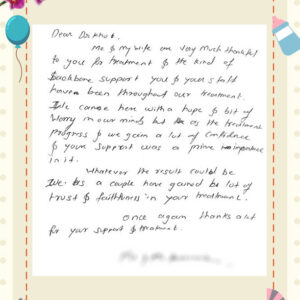 Dear Doctor,
Me & my wife are very much thankful
to you for treatment & the kind of
backbone support you & your staff
have been throughout our treatment.
We came here with a hope & bit of
worry in our minds but as the treatment
progress & we gain a lot of confidence
& your support was a prime importance
in it.
Whatever the result could be
We as a couple have gained be lot of
trust & faithfulness in your treatment.
once again thanks a lot
for your support & treatment.